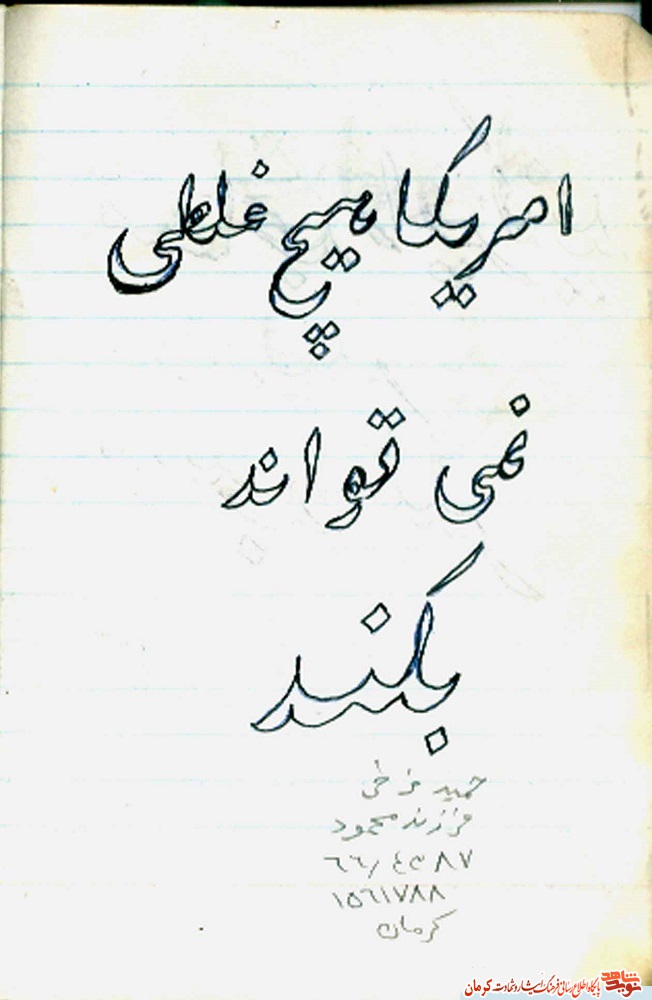 امریکا هیچ غلطی
نمی تواند
بکند
حمید فرخی
فرزند محمود
۶۶/۴۳۸۷
۱۵۶۱۷۸۸
کرمان
نوید شاهد پایگاه اطلاع رسانی فرهنگ ایثار و شهادت کرمان